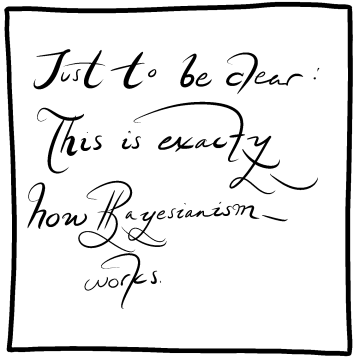 Just to be clear:
This is exactly
how Bayesianism
works.